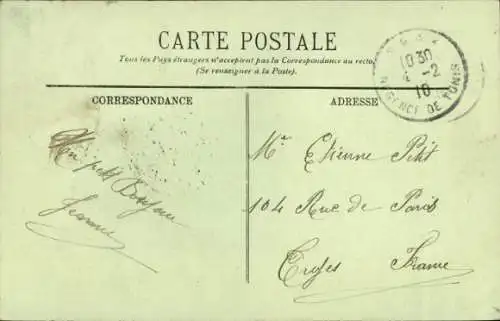 CARTE POSTALE
Tous les Pays étrangers n'acceptent pas la Correspondance au recto
(Se renseigner à la Poste).
CORRESPONDANCE
ADRESSE
10 30
4 -2
10
REGENCE DE TUNIS
Un petit Bonjour
Jeanne
Mr Etienne Petit
104 Rue de Paris
France